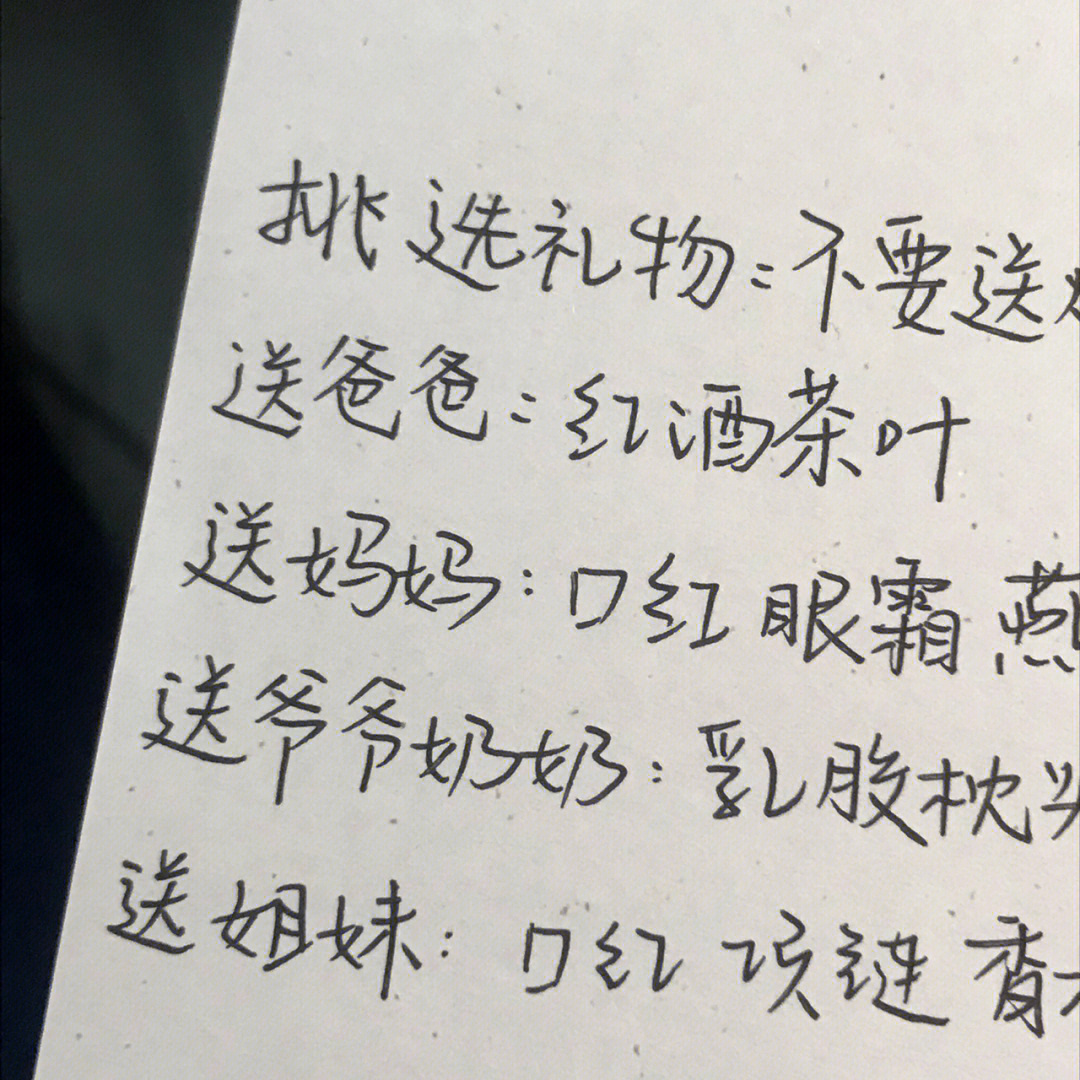 挑选礼物：不要送
送爸爸：红酒茶叶
送妈妈：口红 眼霜 燕
送爷爷奶奶：乳胶枕头
送姐妹：口红 项链 香